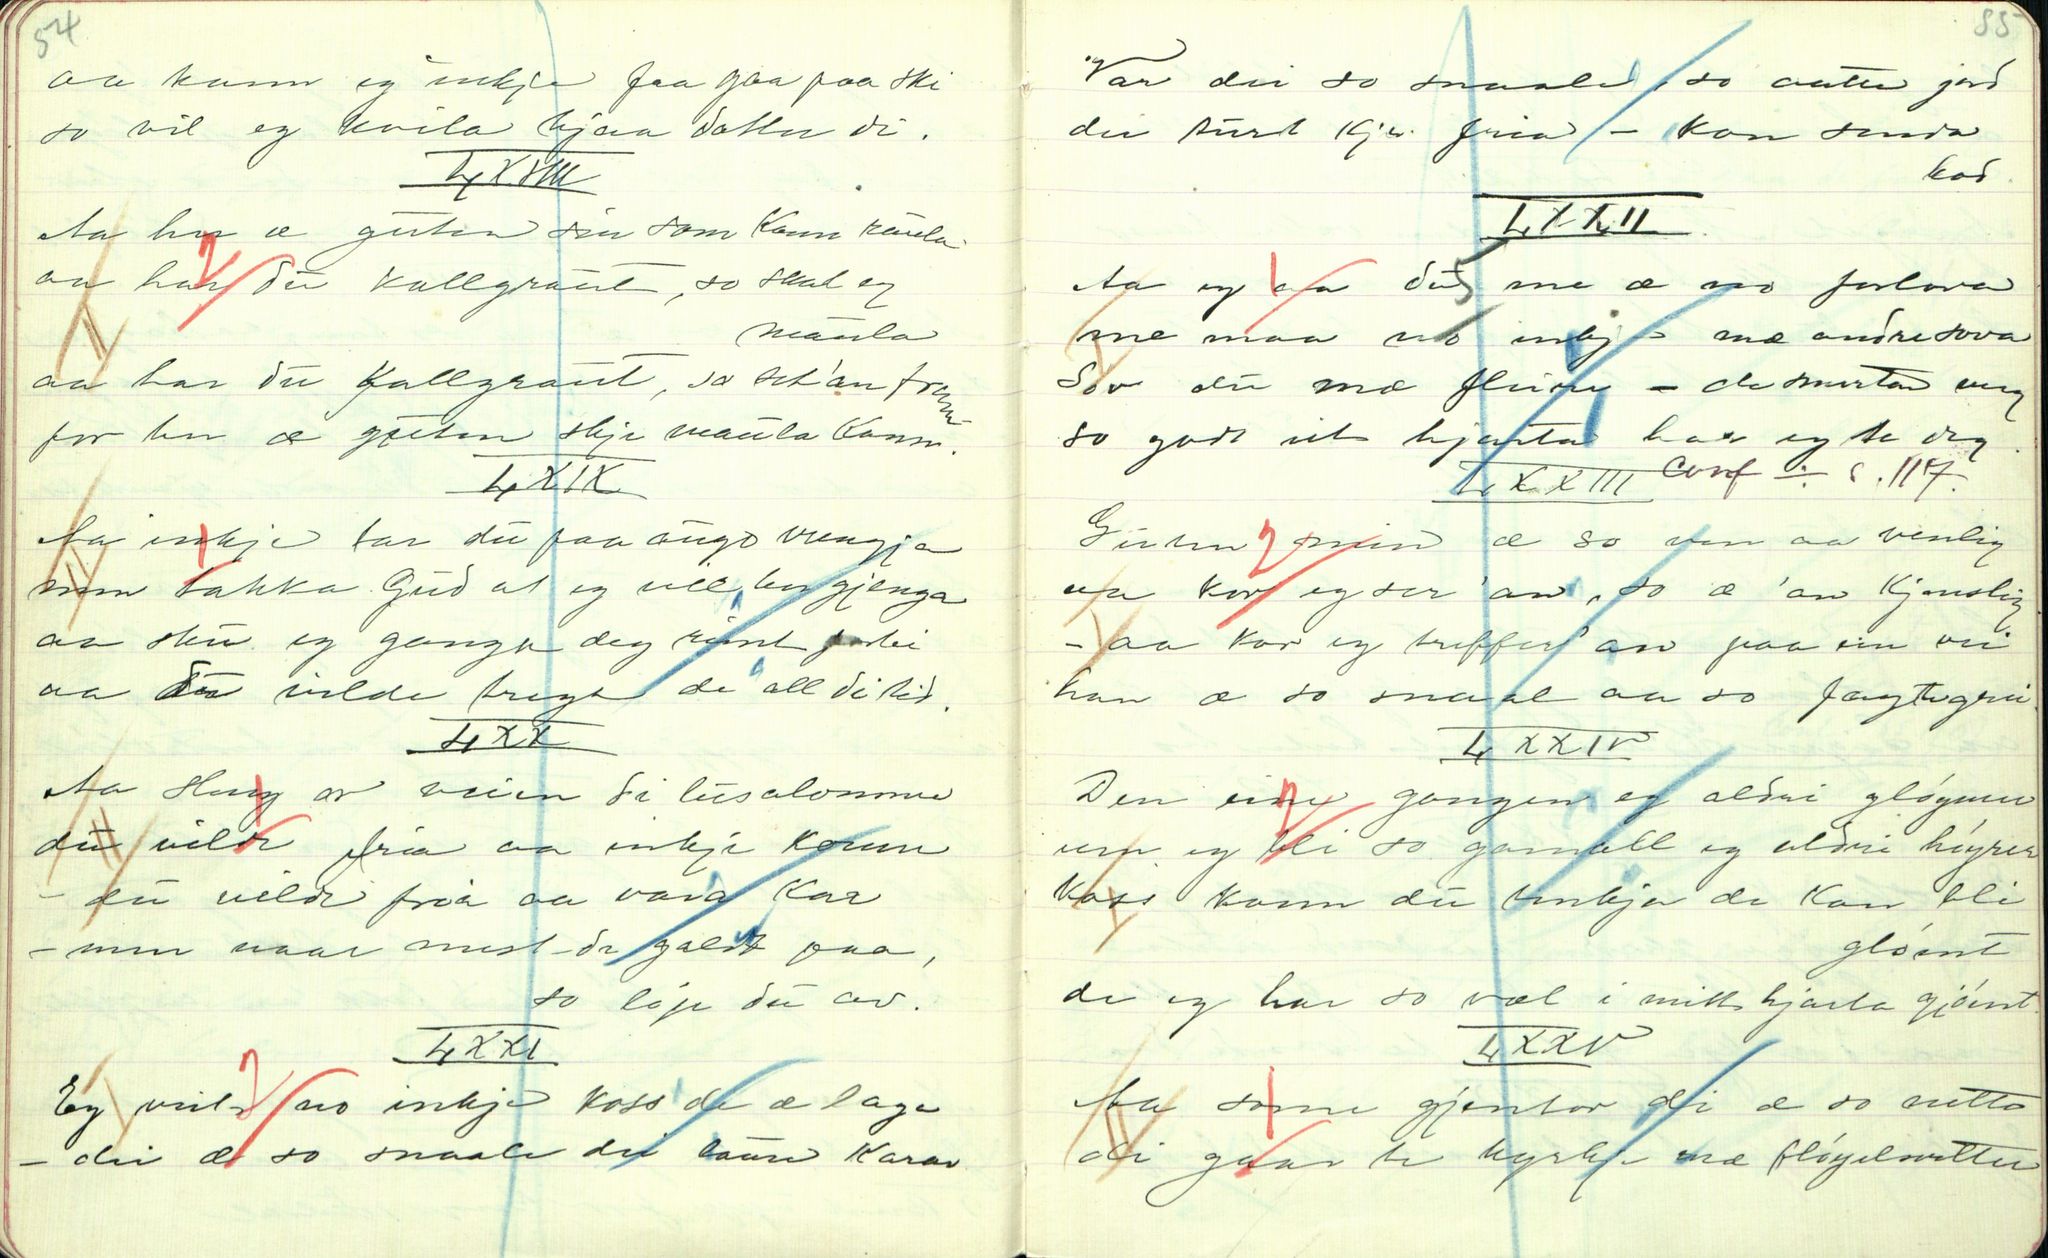 54
aa kann eg inkje faa gaa paa ski
so vil eg kvila hjaa dotter di.
LXVIII
Aa her æ guten sin som kann raula
aa har du kallgraut, so skal eg
maula
aa har du kallgraut, so set'an fram
for her æ guten skje maula kann.
LXIX
Aa inkje tar du paa augo vrengja
min takka Gud at eg vill bergjenga
aa sku eg ganga deg rimt forbi
aa du vilde trega de all di tid.
LXX
Aa sleng av veien di lusalomme
du vilde fria aa inkje komme
- du vilde fria aa vara kar
- men naar mest de galdt paa,
so löje du av.
LXXI
Eg veit no inkje koss de æ laga
- dei æ so snaale dei karar
55
Var dei so snaale, so aatte jord
dei turt kje fria - kon senda
bod.
LXXII
Aa eg aa du me æ no forlova
me maa no inkje mæ andre sova
Söv du mæ fleire - de smertar meg
so godt eit hjarta har eg te deg.
LXXIII conf ÷ s. 117.
Guten min æ so ven aa venlig
aa kor eg ser 'an, so æ 'an kjenslig
- aa kor eg treffer 'an paa ein vei
han æ so snaal aa so
LXXIV
Den eine gongen eg aldri glöymer
um eg bli so gamall eg aldri höyrer
Koss kann du tenkja de kan bli
glöimt
de eg har so væl i mitt hjarta gjöimt.
LXXV
Aa some gjentor di æ so netta
di gaar te kyrkje mæ flöyelsvetter